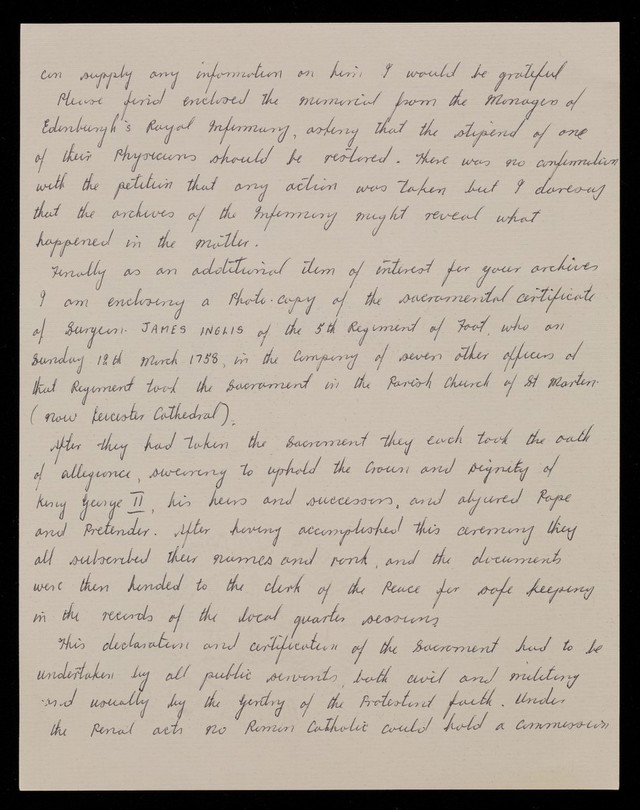 can supply any information on him I would be grateful
Please find enclosed the memorial from the Managers of
Edinburgh's Royal Infirmary, asking that the stipend of one
of their Physicians should be restored. There was no confirmation
with the petition that any action was taken but I daresay
that the archives of the Infirmary might reveal what
happened in the matter.
Finally as an additional item of interest for your archives
I am enclosing a Photo-copy of the sacramental certificate
of Surgeon JAMES INGLIS of the 5th Regiment of Foot, who on
Sunday 12th March 1758, in the Company of seven other officers of
that Regiment took the Sacrament in the Parish Church of St Martin
(now Leicester Cathedral).
After they had taken the Sacrament they each took the oath
of allegiance, swearing to uphold the Crown and Dignity of
King George II, his heirs and successors, and abjured Pope
and Pretender. After having accomplished this ceremony they
all subscribed their names and rank, and the documents
were then handed to the clerk of the Peace for safe keeping
in the records of the local quarter sessions
This declaration and certification of the Sacrament had to be
undertaken by all public servants, both civil and military
and usually by the Gentry of the Protestant faith. Under
the Penal acts no Roman Catholic could hold a Commission